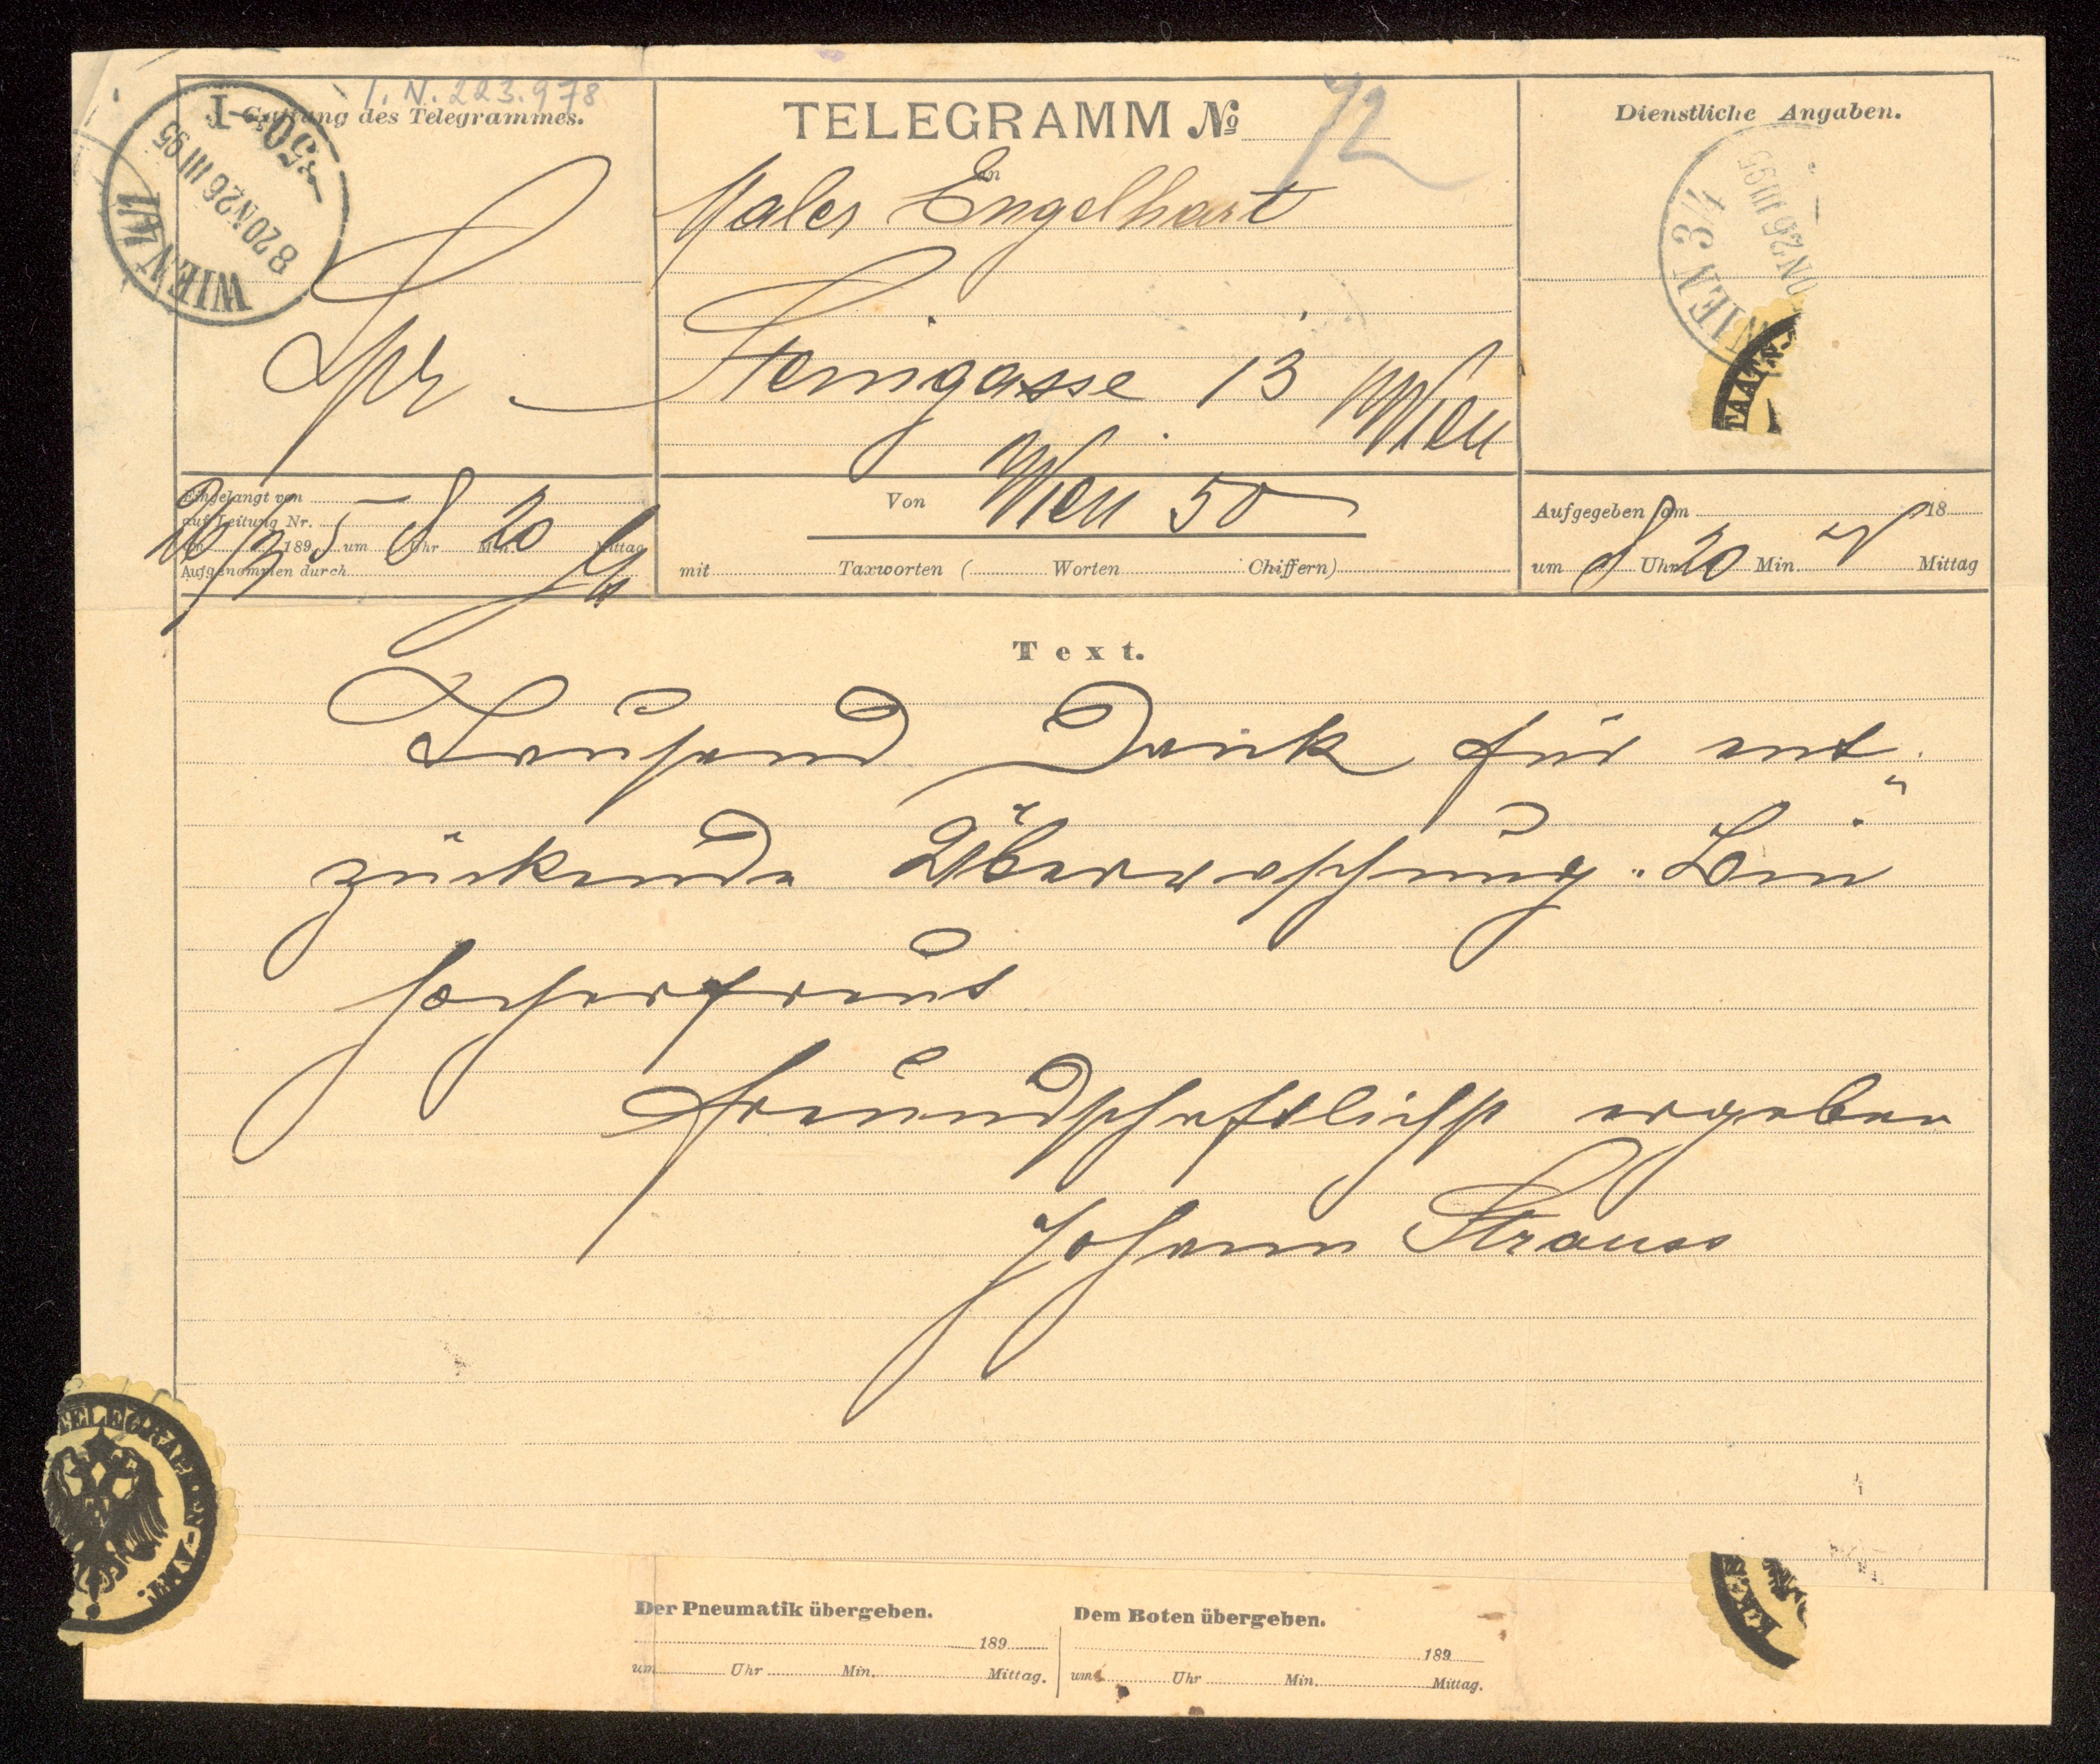 I. N. 223.978
Gattung des Telegrammes.
TELEGRAMM No 72
Dienstliche Angaben.
WIEN 4/1
8 20 N 26 III 95
WIEN 3/4
26 III 95
an
Maler Engelhart
Spr
Steingasse 13 Wien
STAATS-
Eingelangt von
auf Leitung Nr.
26/3 1895 um 8 Uhr Min. 20 Mittag
Aufgenommen durch
Von Wien 50
mit Taxworten ( Worten Chiffern)
Aufgegeben am 18
um 8 Uhr 20 Min. N Mittag
Text.
Tausend Dank für ent„
zückende Überraschung. Bin
hocherfreut
freundschaftlichst ergeben
Johann Strauss
TELEGRAPHEN-AMT
Der Pneumatik übergeben.
189
um Uhr Min. Mittag.
Dem Boten übergeben.
189
um Uhr Min. Mittag.